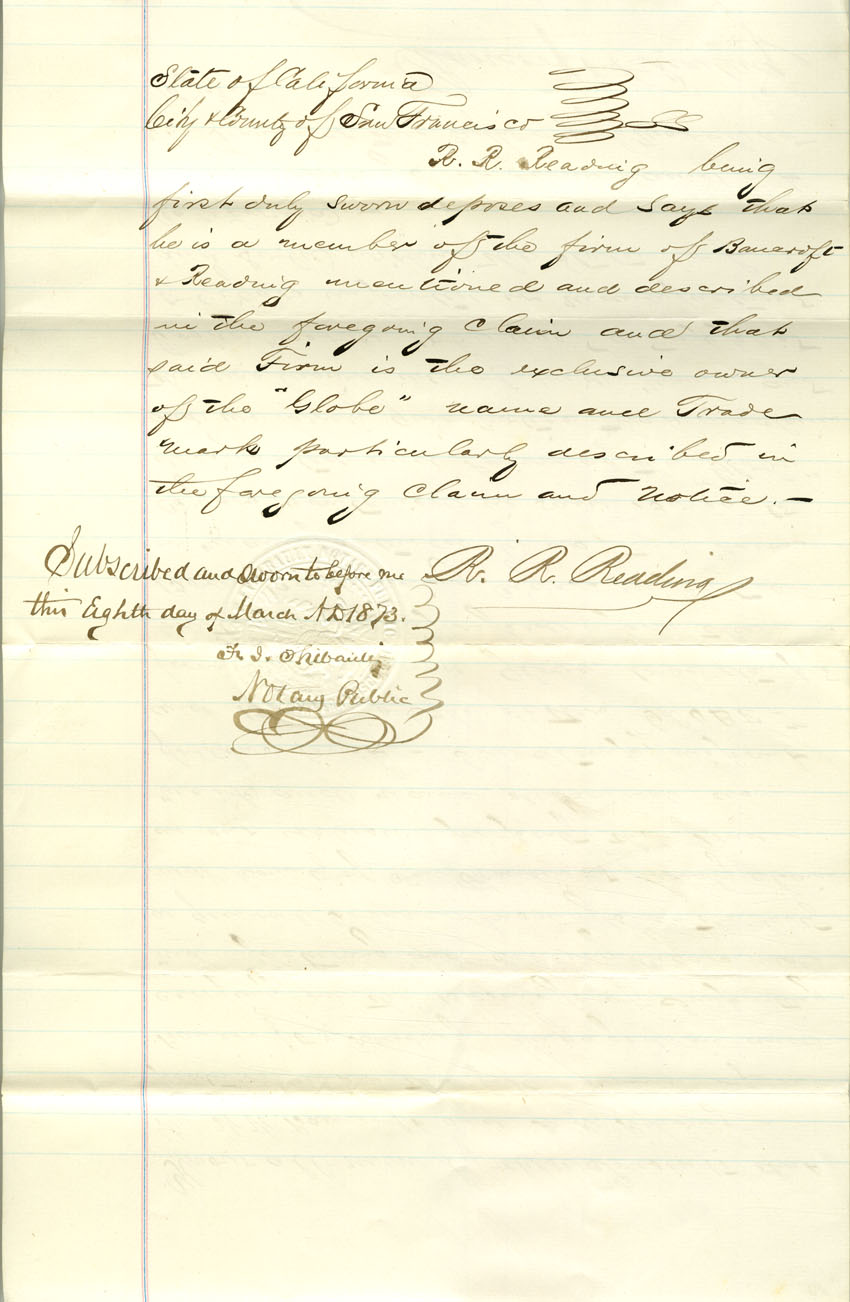 State of California
City & County of San Francisco
R. R. Reading being
first duly sworn deposes and says that
he is a member of the firm of Bancroft
& Reading mentioned and described
in the foregoing claim and that
said Firm is the exclusive owner
of the "Globe" name and Trade
mark particularly described in
the foregoing claim and notice. —
Subscribed and sworn to before me R. R. Reading
this Eighth day of March AD 1873.
Notary Public